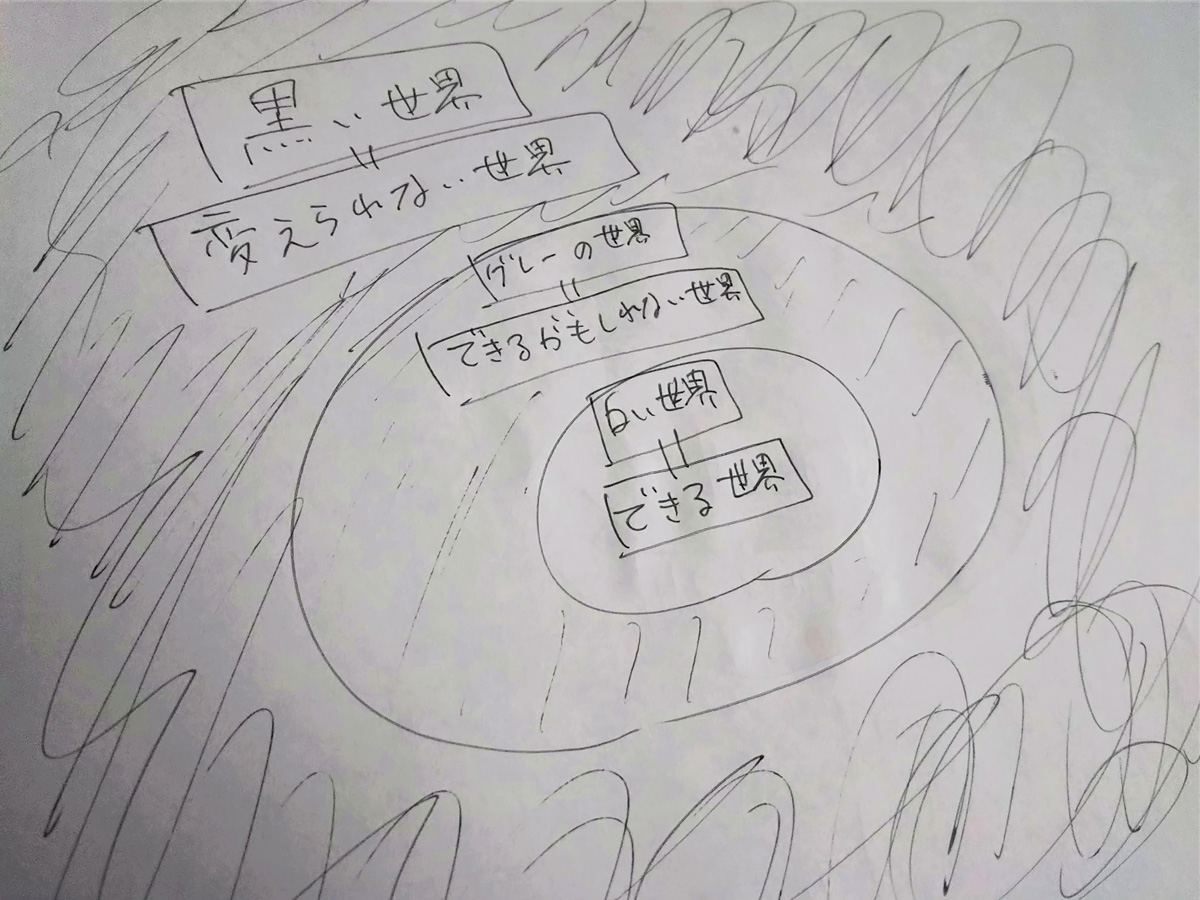 黒い世界
=
変えられない世界
グレーの世界
=
できるかもしれない世界
白い世界
=
できる世界